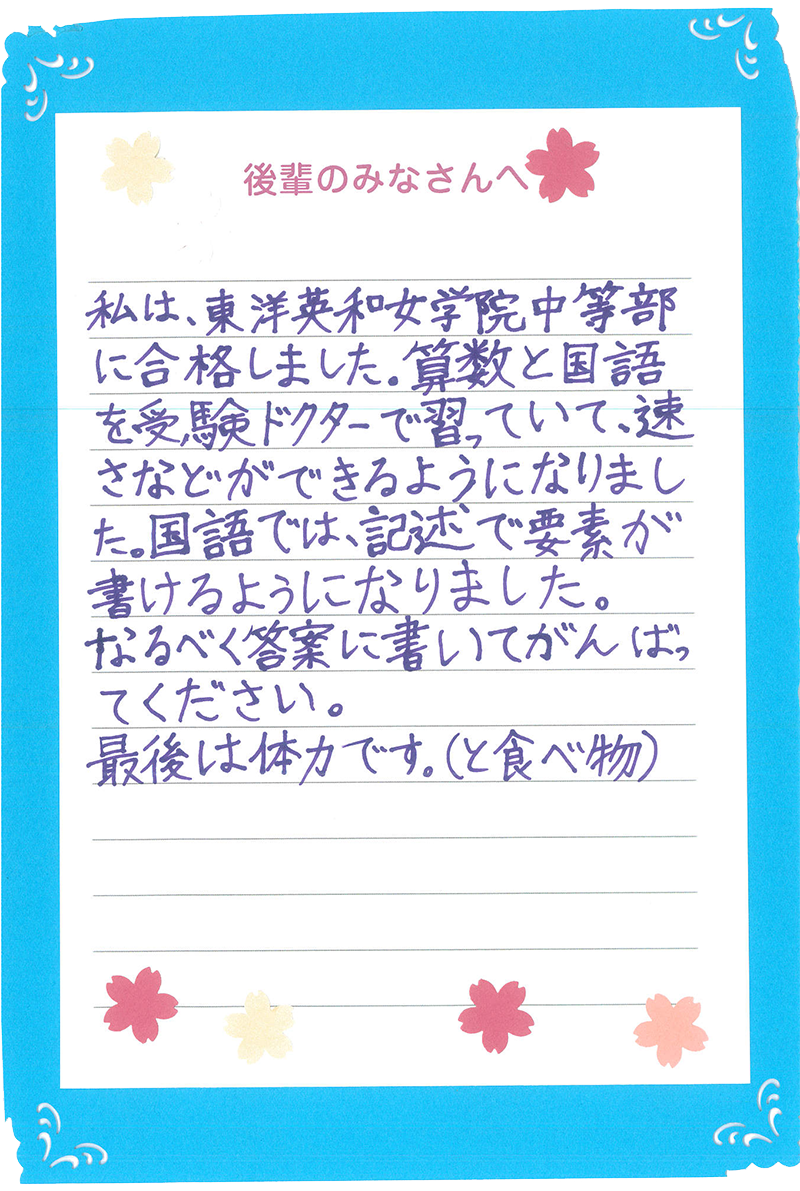 後輩のみなさんへ
私は、東洋英和女学院中等部
に合格しました。算数と国語
を受験ドクターで習っていて、速
さなどができるようになりまし
た。国語では、記述で要素が
書けるようになりました。
なるべく答案に書いてがんばっ
てください。
最後は体力です。(と食べ物)